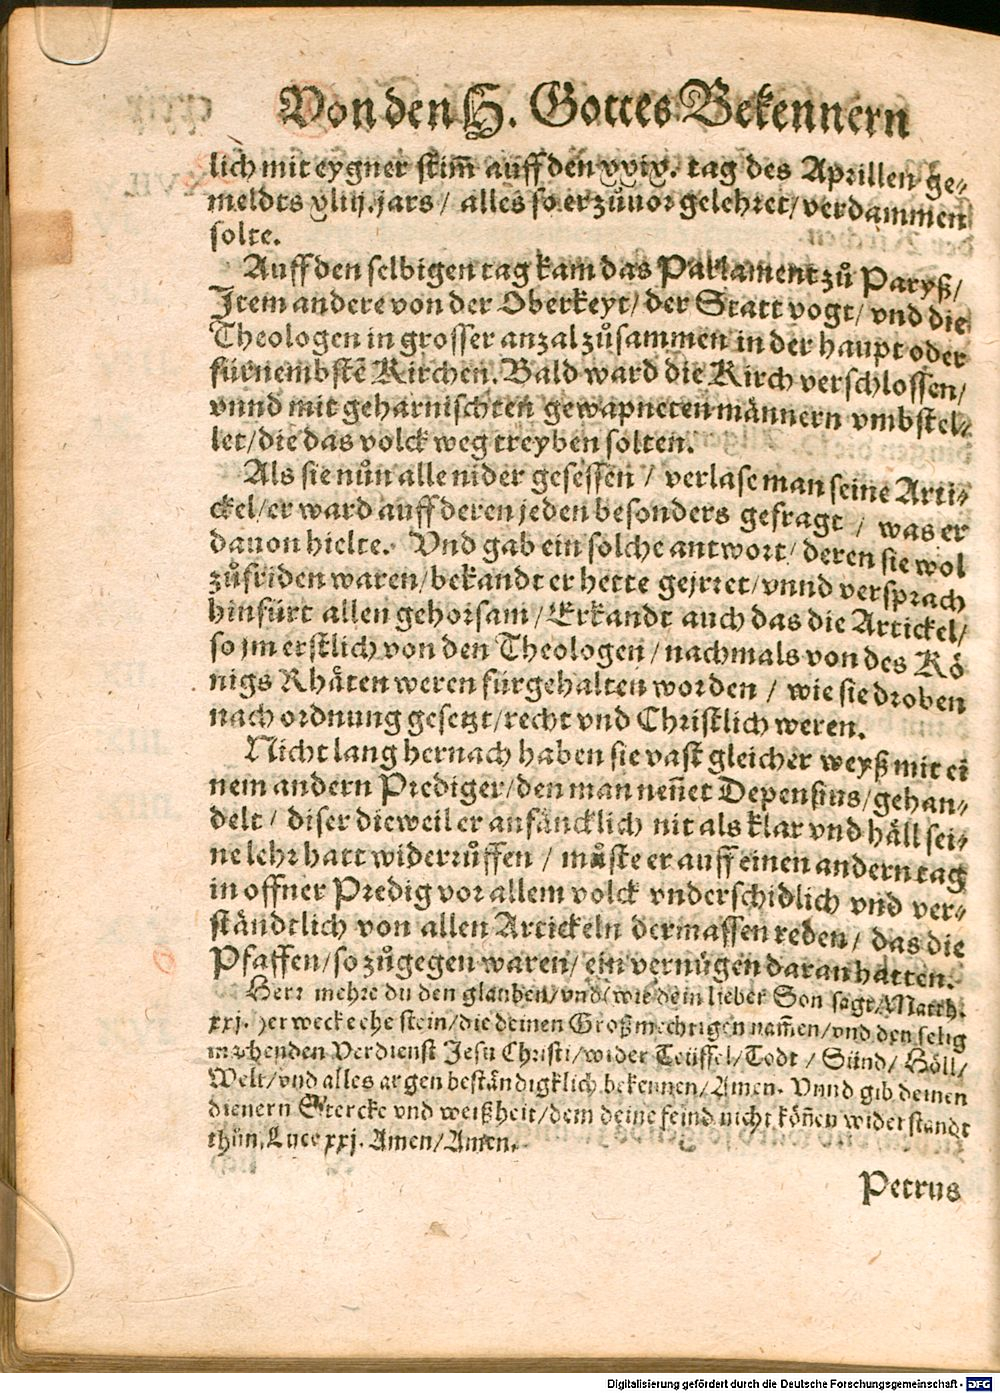 Von den H. Gottes Bekennern
lich mit eygner stim̃ auff den xxix. tag des Aprillen ge-
meldts xliij. jars / alles so er zůuor gelehret / verdammen
solte.
Auff den selbigen tag kam das Parlament zů Paryß /
Item andere von der Oberkeyt / der Statt vogt / vnd die
Theologen in grosser anzal zůsammen in der haupt oder
fürnembstẽ Kirchen. Bald ward die Kirch verschlossen /
vnnd mit geharnischten gewapneten männern vmbstel-
let / die das volck weg treyben solten.
Als sie nůn alle nider gesessen / verlase man seine Arti-
ckel / er ward auff deren jeden besonders gefragt / was er
dauon hielte. Vnd gab ein solche antwort / deren sie wol
zůfriden waren / bekandt er hette gejrret / vnnd versprach
hinfürt allen gehorsam / Erkandt auch das die Artickel /
so jm erstlich von den Theologen / nachmals von des Kö
nigs Rhäten weren fürgehalten worden / wie sie droben
nach ordnung gesetzt / recht vnd Christlich weren.
Nicht lang hernach haben sie vast gleicher weyß mit ei
nem andern Prediger / den man neñet Depensius / gehan-
delt / diser dieweil er anfäncklich nit als klar vnd häll sei-
ne lehr hatt widerrůffen / můste er auff einen andern tag
in offner Predig vor allem volck vnderschidlich vnd ver-
ständtlich von allen Artickeln dermassen reden / das die
Pfaffen / so zůgegen waren / ein vernügen daran hatten.
Herr mehre du den glauben / vnd (wie dein lieber Son sagt / Matth.
xxj.) erwecke ehe stein / die deinen Großmechtigen nam̃en / vnd den selig
machenden Verdienst Jesu Christi / wider Teüffel / Todt / Sünd / Höll /
Welt / vnd alles argen beständigklich bekennen / Amen. Vnnd gib deinen
dienern Stercke vnd weißheit / dem deine feind nicht köñen widerstandt
thůn, Luce xxj. Amen / Amen.
Petrus
Digitalisierung gefördert durch die Deutsche Forschungsgemeinschaft - DFG